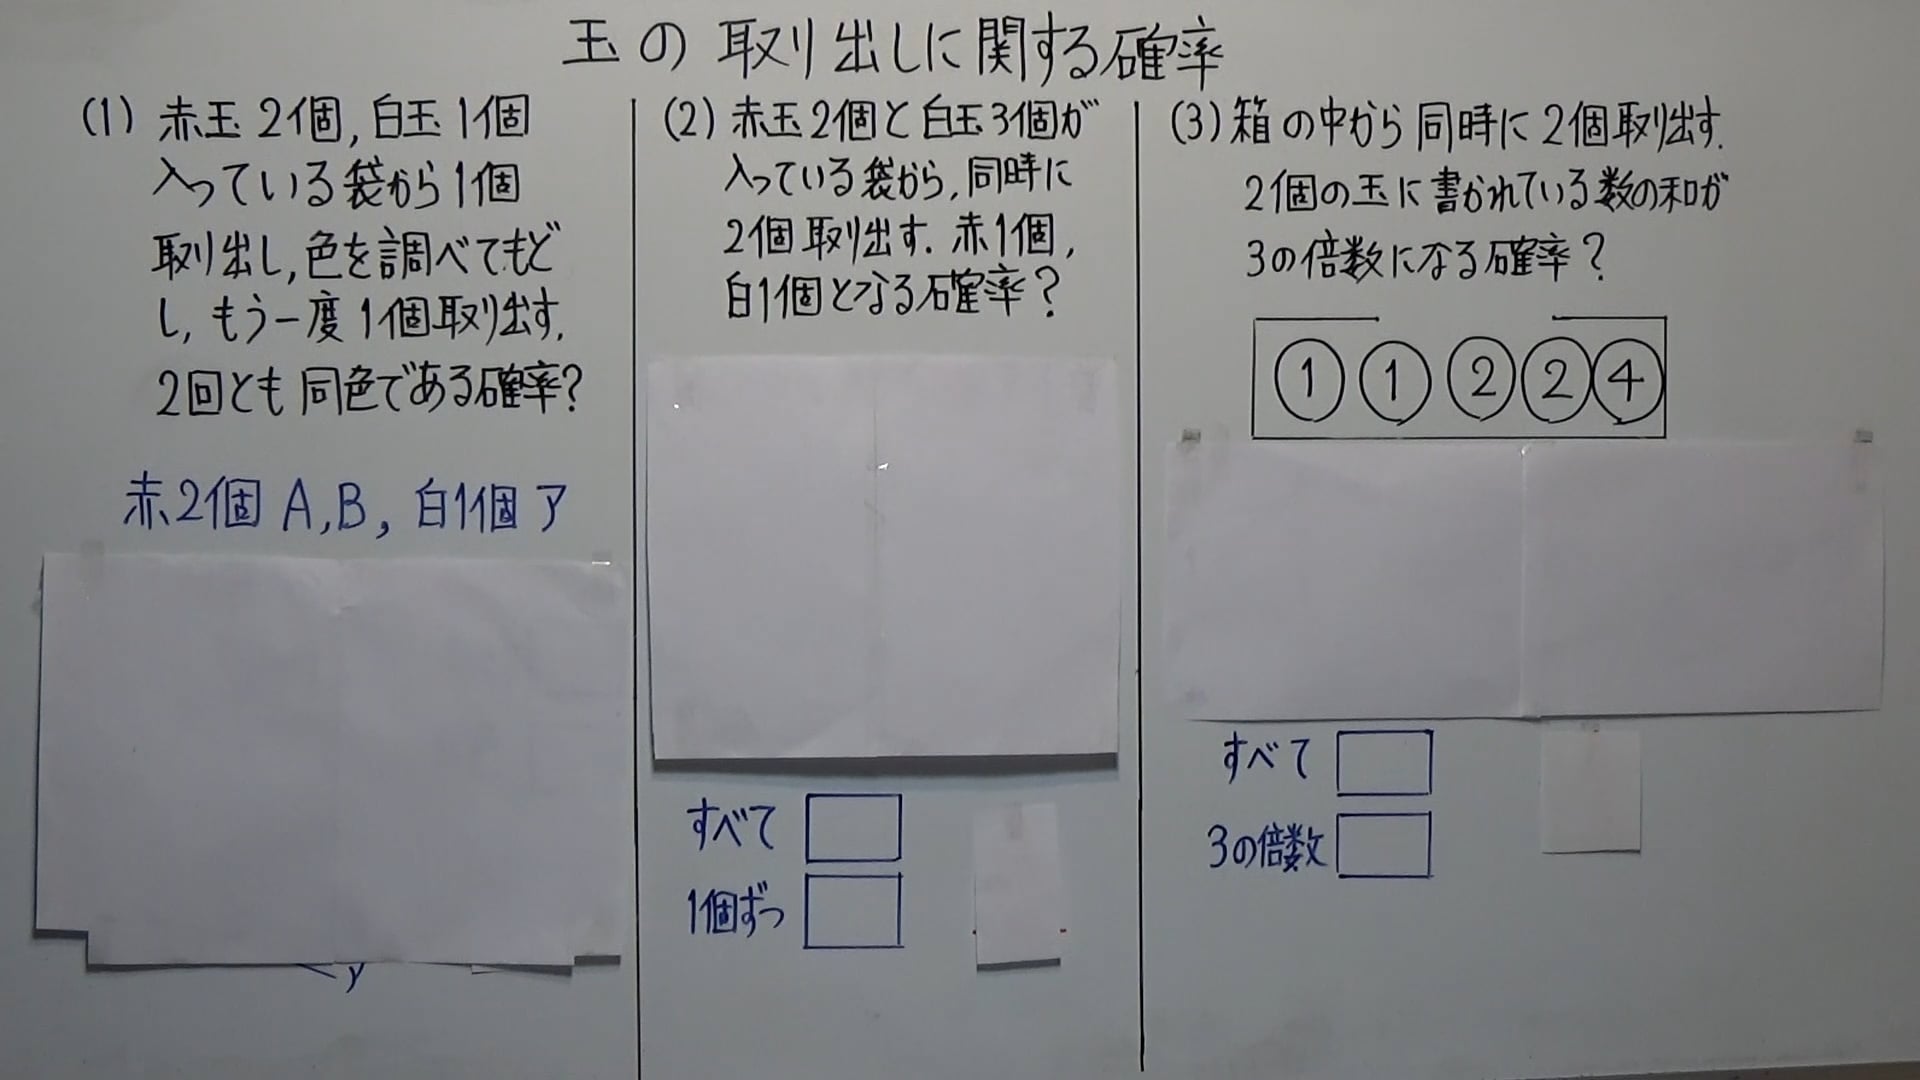 玉の取り出しに関する確率
(1) 赤玉2個,白玉1個
入っている袋から1個
取り出し,色を調べてもど
し,もう一度1個取り出す.
2回とも同色である確率?
赤2個 A,B, 白1個 ア
(2) 赤玉2個と白玉3個が
入っている袋から,同時に
2個取り出す. 赤1個,
白1個となる確率?
すべて
1個ずつ
(3) 箱の中から同時に2個取り出す.
2個の玉に書かれている数の和が
3の倍数になる確率?
1 1 2 2 4
すべて
3の倍数